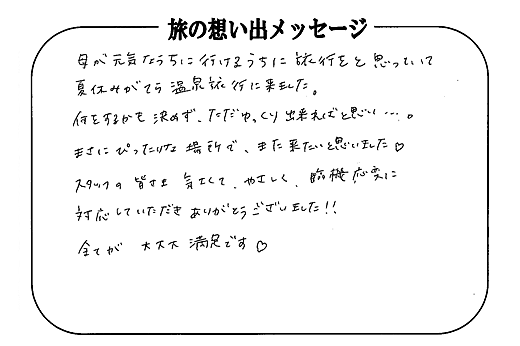 旅の想い出メッセージ
母が元気なうちに行けるうちに旅行をと思っていて
夏休みがてら温泉旅行に来ました。
何をするかも決めず、ただゆっくり出来ればと思い…。
まさにぴったりな場所で、また来たいと思いました♡
スタッフの皆さま気さくで、やさしく、臨機応変に
対応していただきありがとうございました!!
全てが大大大満足です♡